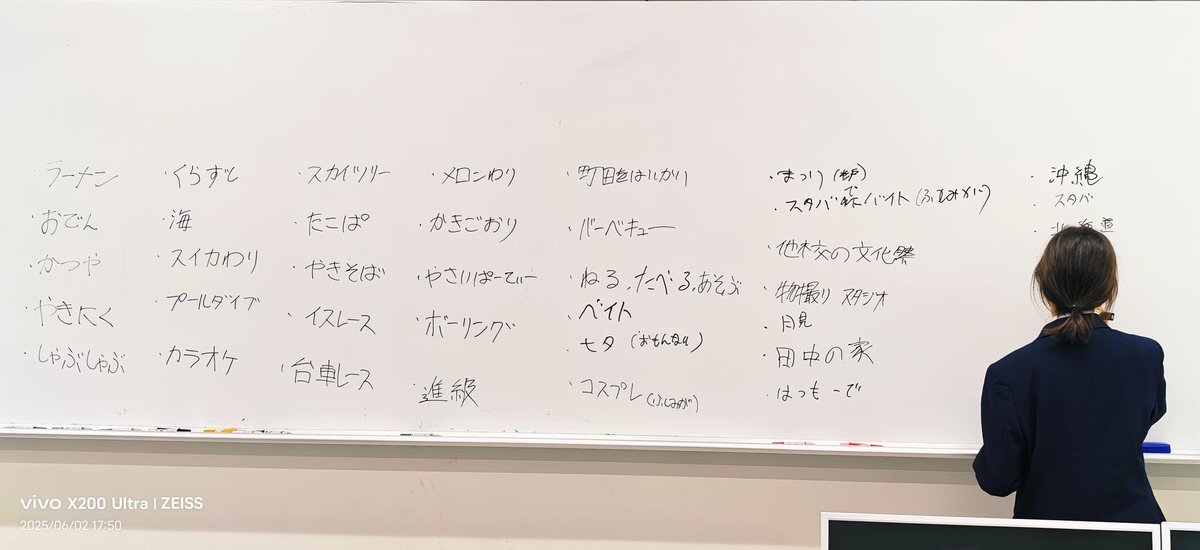 ・ラーメン
・おでん
・かつや
・やきにく
・しゃぶしゃぶ
・くらずし
・海
・スイカわり
・プールダイブ
・カラオケ
・スカイツリー
・たこぱ
・やきそば
・イスレース
・台車レース
・メロンわり
・かきごおり
・やさいぱーてぃー
・ボーリング
・進級
・町田をはいかい
・バーベキュー
・ねる、たべる、あそぶ
・バイト
・七夕
・コスプレ
・まつり
・スタバでバイト
・他校の文化祭
・物撮り スタジオ
・月見
・田中の家
・はつもーで
・沖縄
・スタバ
vivo X200 Ultra | ZEISS
2025/06/02 17:50